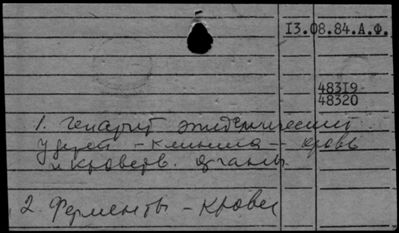 13.08.84.А.Ф.
48319
48320
1. Гепатит эпидемический
у детей - клиника - кровь
и кроветв. органы
2. Ферменты - крови